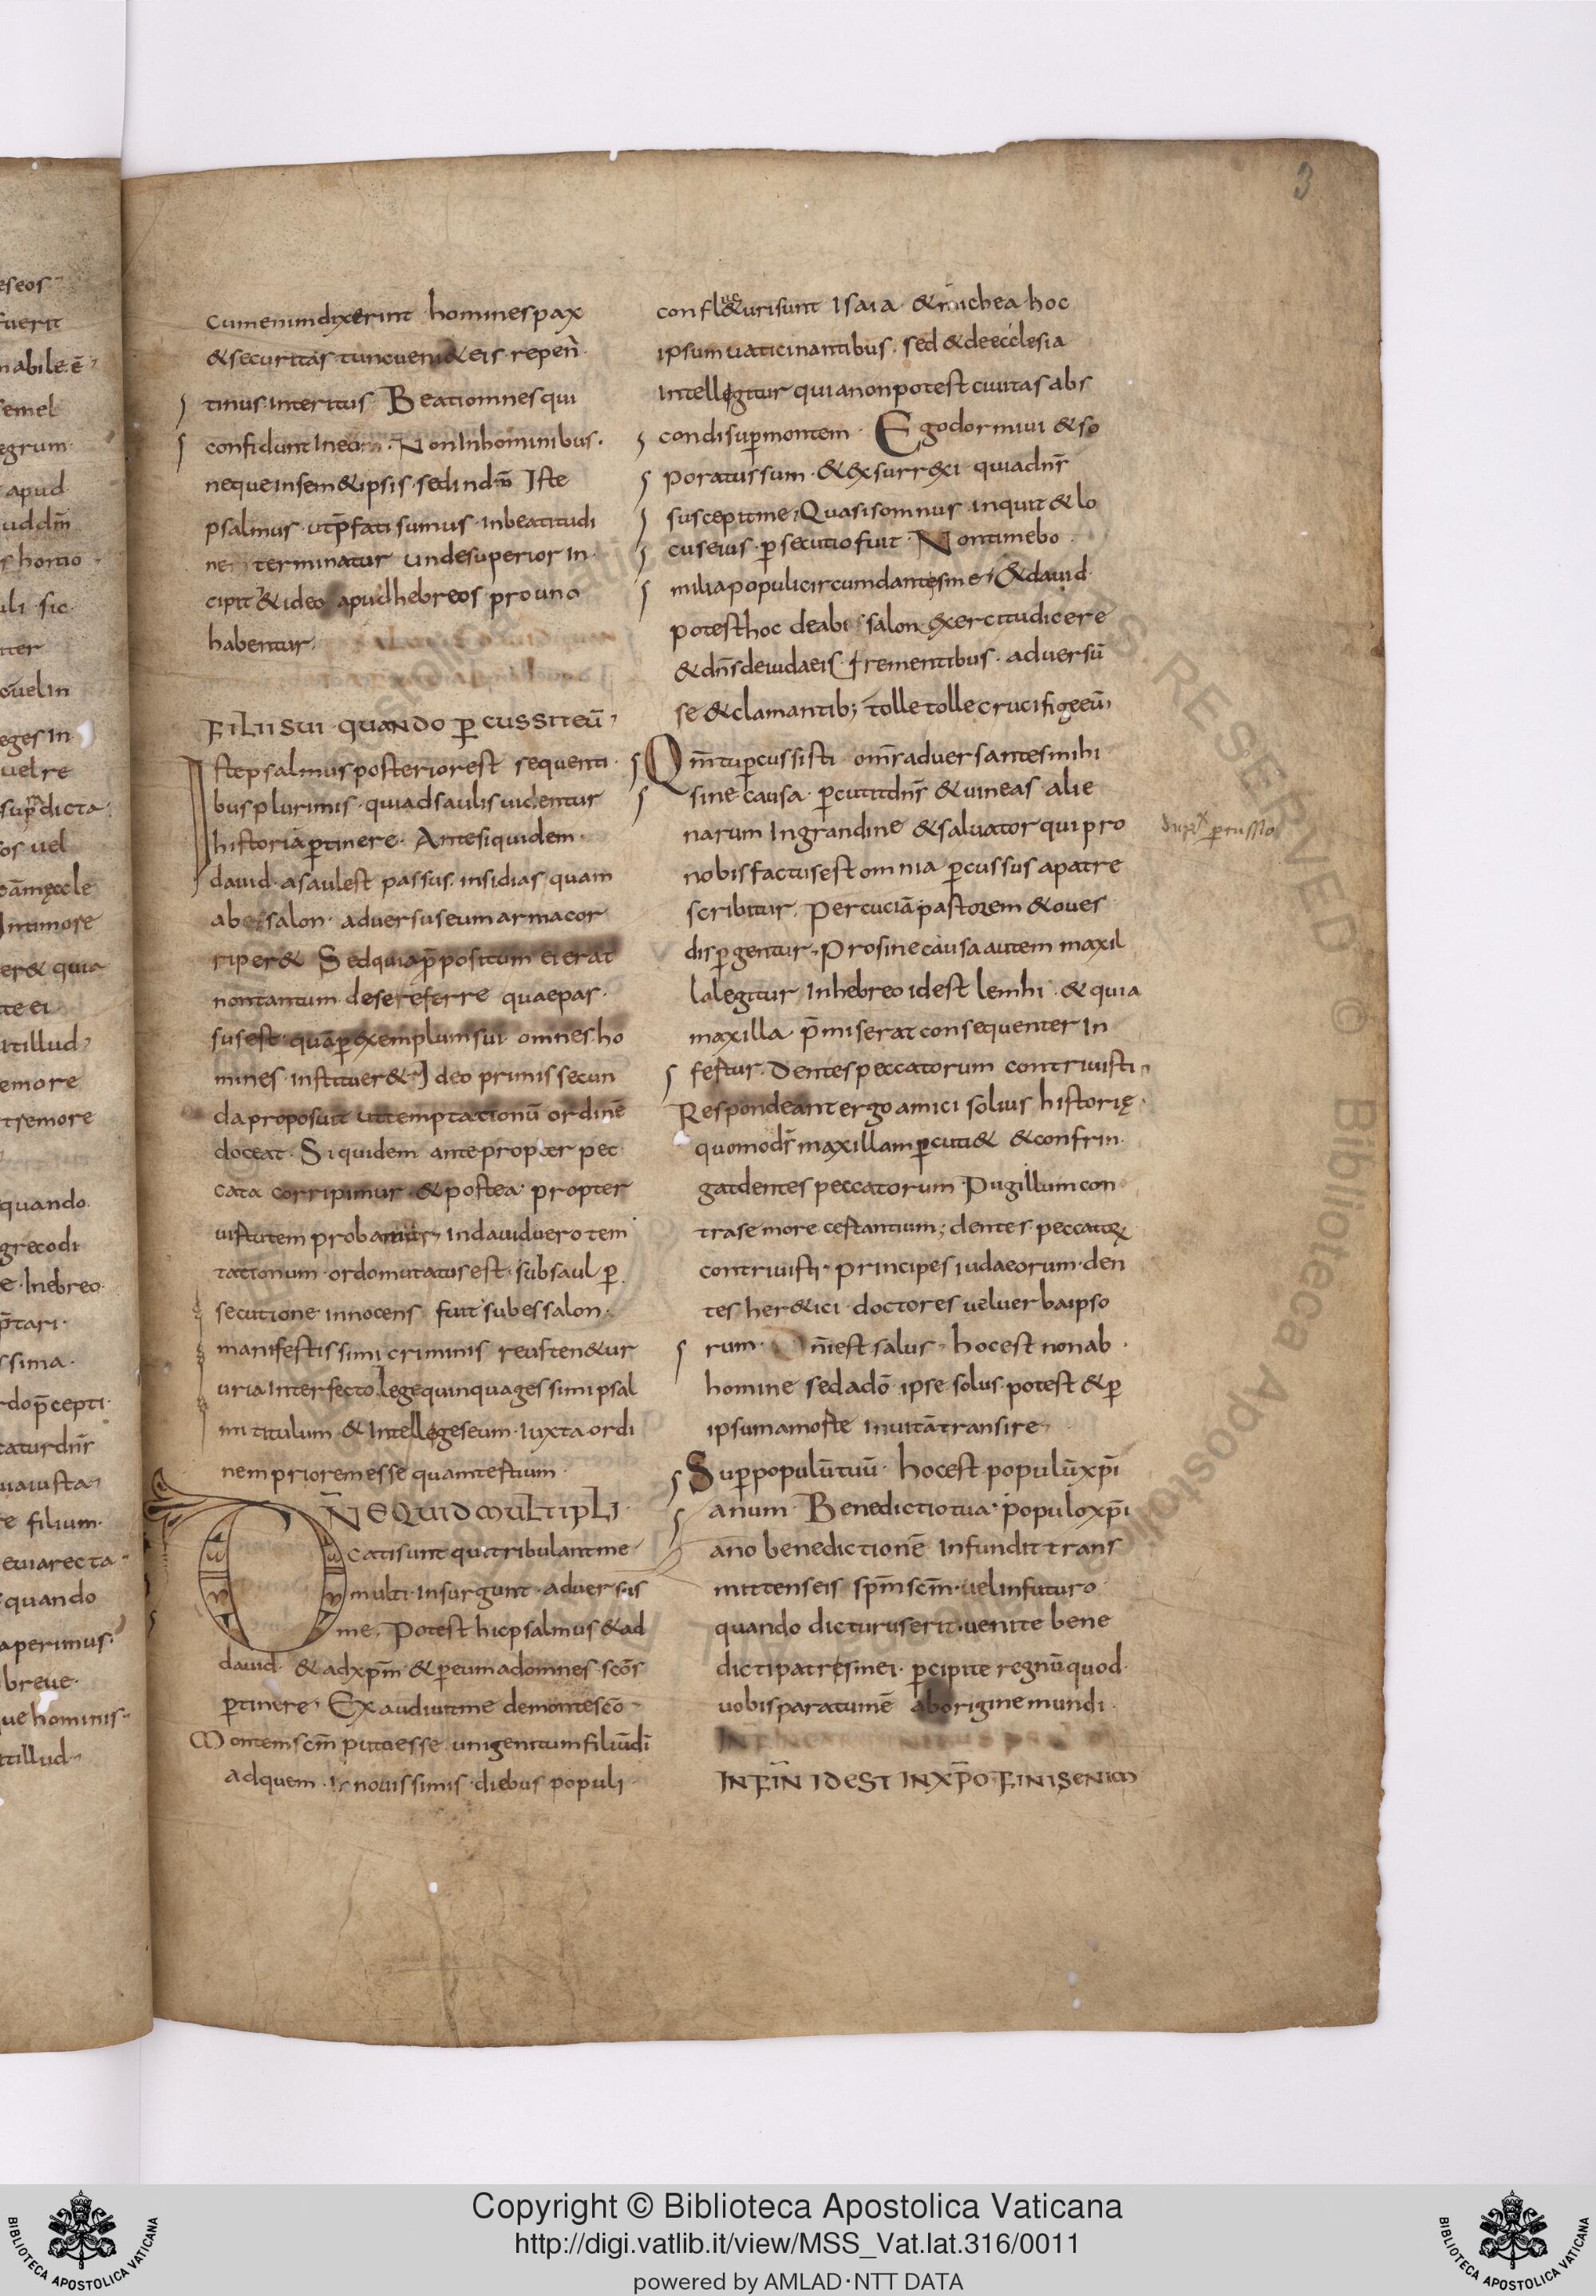 3
cum enim dixerint homines pax
& securitas tunc veni& eis repen
tinus interitus Beati omnes qui
confidunt In eo · Non In hominibus ·
neque in sem&ipsis · sed in dn̄o Iste
psalmus · ut p̄fati sumus · in beatitudi
ne terminatur unde superior in
cipit & ideo apud hebreos pro uno
habentur
FILII SUI · QUANDO PERCUSSIT EŪ
Iste psalmus posterior est sequenti
bus plurimis · qui ad saulis videntur
historiā ꝑtinere · Ante siquidem
david · a saul est passus insidias quam
abessalon · adversus eum arma cor
riper& Sed quia p̄positum ei erat
non tantum de se referre quae par
sus est · quā ꝑ exemplum sui omnes ho
mines institver& Ideo primis secun
da proposuit ut temptationū ordinē
doceat · Siquidem ante propter pec
cata corripimur · & postea propter
virtutem probamur · In david vero tem
tationum ordo mutatus est · sub saul ꝑ
secutione innocens fuit sub essalon
manifestissimi criminis reus ten&ur
uria Interfecto Lege quinquagessimi psal
mi titulum & Intelleges eum iuxta ordi
nem priorem esse quam tertium
DN̄E QUID MULTIPLI
cati sunt qui tribulant me
multi insurgunt adversus
me · Potest hic psalmus & ad
david · & ad xp̄m · & ꝑ eum ad omnes scōs
ꝑtinere · Exaudivit me de monte scō
Montem scm̄ puto esse unigenitum filiū dī
ad quem In novissimis diebus populi
confluent& uri sunt Isaia & michea hoc
ipsum vaticinantibus · sed & de ecclesia
Intellegitur quia non potest civitas abs
condi supra montem · Ego dormivi & so
poratus sum · & exsurrexi quia dn̄s
suscepit me · Quasi somnus inquit & lo
cus eius · ꝑsecutio fuit · Non timebo
milia populi circumdantes me · & david
potest hoc de abessalon exercitu dicere
& dn̄s de iudaeis frementibus · adversū
se & clamantib; tolle tolle crucifige eū
Qm̄ tu ꝑcussisti om̄s adversantes mihi
sine causa · ꝑcutit dn̄s & vineas alie
narum In grandine & salvator qui pro
nobis factus est omnia ꝑcussus a patre
scribitur Percuciā pastorem & oves
disꝑgentur · Pro sine causa autem maxil
la legitur In hebreo id est lemhi · & quia
maxilla p̄miserat consequenter In
fertur · Dentes peccatorum contrivisti
Respondeant ergo amici solius historię
quomodo dn̄s maxillam ꝑcuti& & confrin
gat dentes peccatorum Pugillum con
tra se more certantium; dentes peccatoꝝ
contrivisti · principes iudaeorum · den
tes her&ici doctores vel verba ipso
rum · Dn̄i est salus · hoc est non ab
homine sed a dō ipse solus potest & ꝑ
ipsum a morte in vitā transire
Super populū tuū · hoc est populū xp̄i
anum · Benedictio tua · populo xp̄i
ano benedictionē Infundit trans
mittens eis spm̄ scm̄ · vel in futuro
quando dicturus erit · venite bene
dicti patres mei · ꝑcipite regnū quod
vobis paratum ē ab origine mundi
IN FIN̄ ID EST IN XP̄O FINIS ENIM
Copyright © Biblioteca Apostolica Vaticana
http://digi.vatlib.it/view/MSS_Vat.lat.316/0011
powered by AMLAD·NTT DATA
BIBLIOTECA APOSTOLICA VATICANA
BIBLIOTECA APOSTOLICA VATICANA